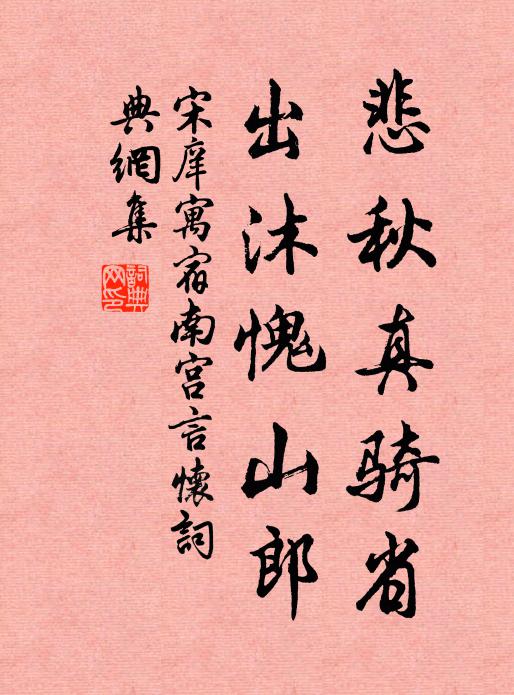 悲秋真骑省
出沐愧山郎
宋庠寓宿南宫言懷詞
典網集
詞典
网印